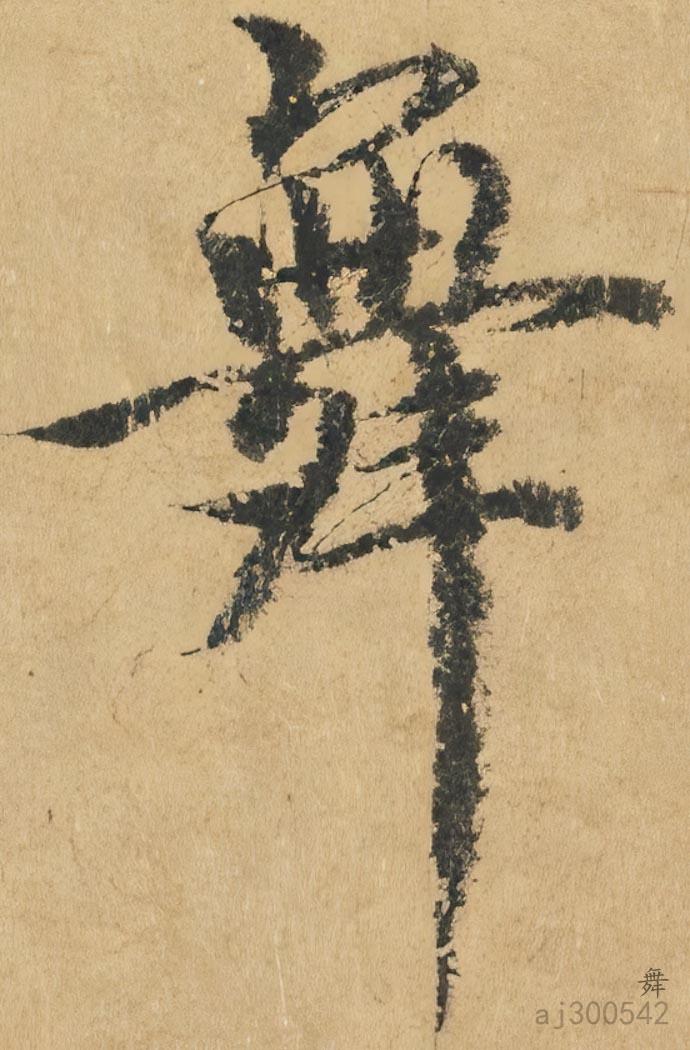 舞
舞
aj300542